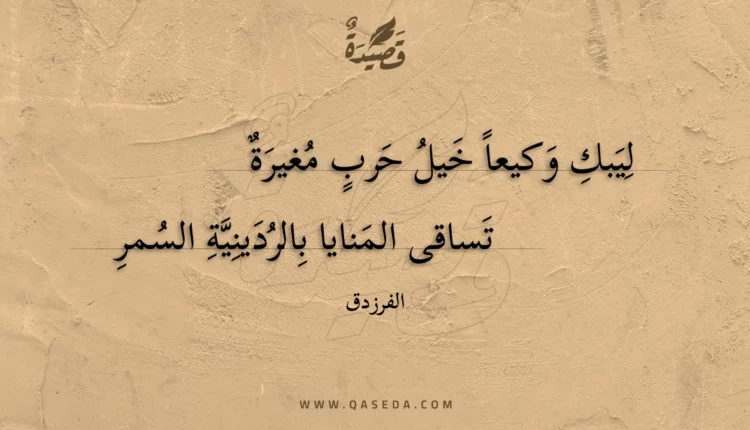 قَصيْدَةٌ
لِيَبكِ وَكيعاً خَيلُ حَربٍ مُغيرَةٌ
تَساقى المَنايا بِالرُدَينِيَّةِ السُمرِ
الفرزدق
WWW.QASEDA.COM